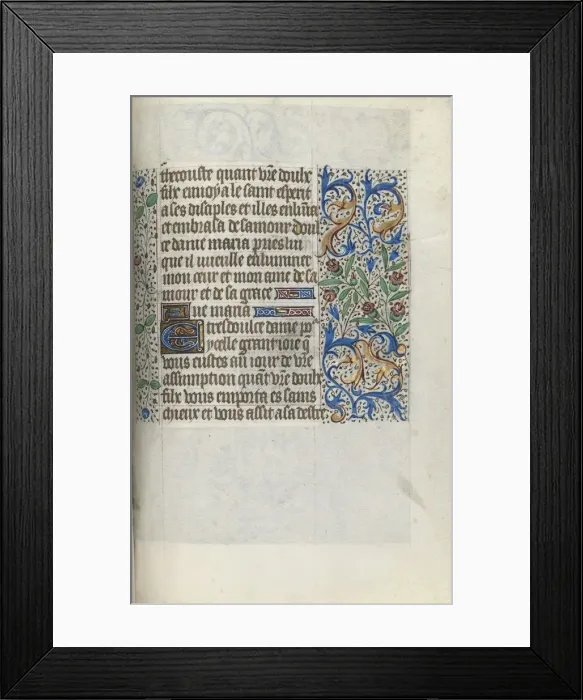 thecouste quant vr̃e doulx
filz enuoya le saint esperit
a ses disciples et illes enlum̃a
et embrasa de samour don
ce dame maria pries luy
que il vueille enluminer
mon cueur et mon ame de sa
mour et de sa grace
Aue maria
E tresdoulce dame por
ycelle grant ioie q̃
vous eustes au iour de vr̃e
assumption quãt vr̃e doulx
filz vous emporta es sains
cieulx et vous assit a sa destre